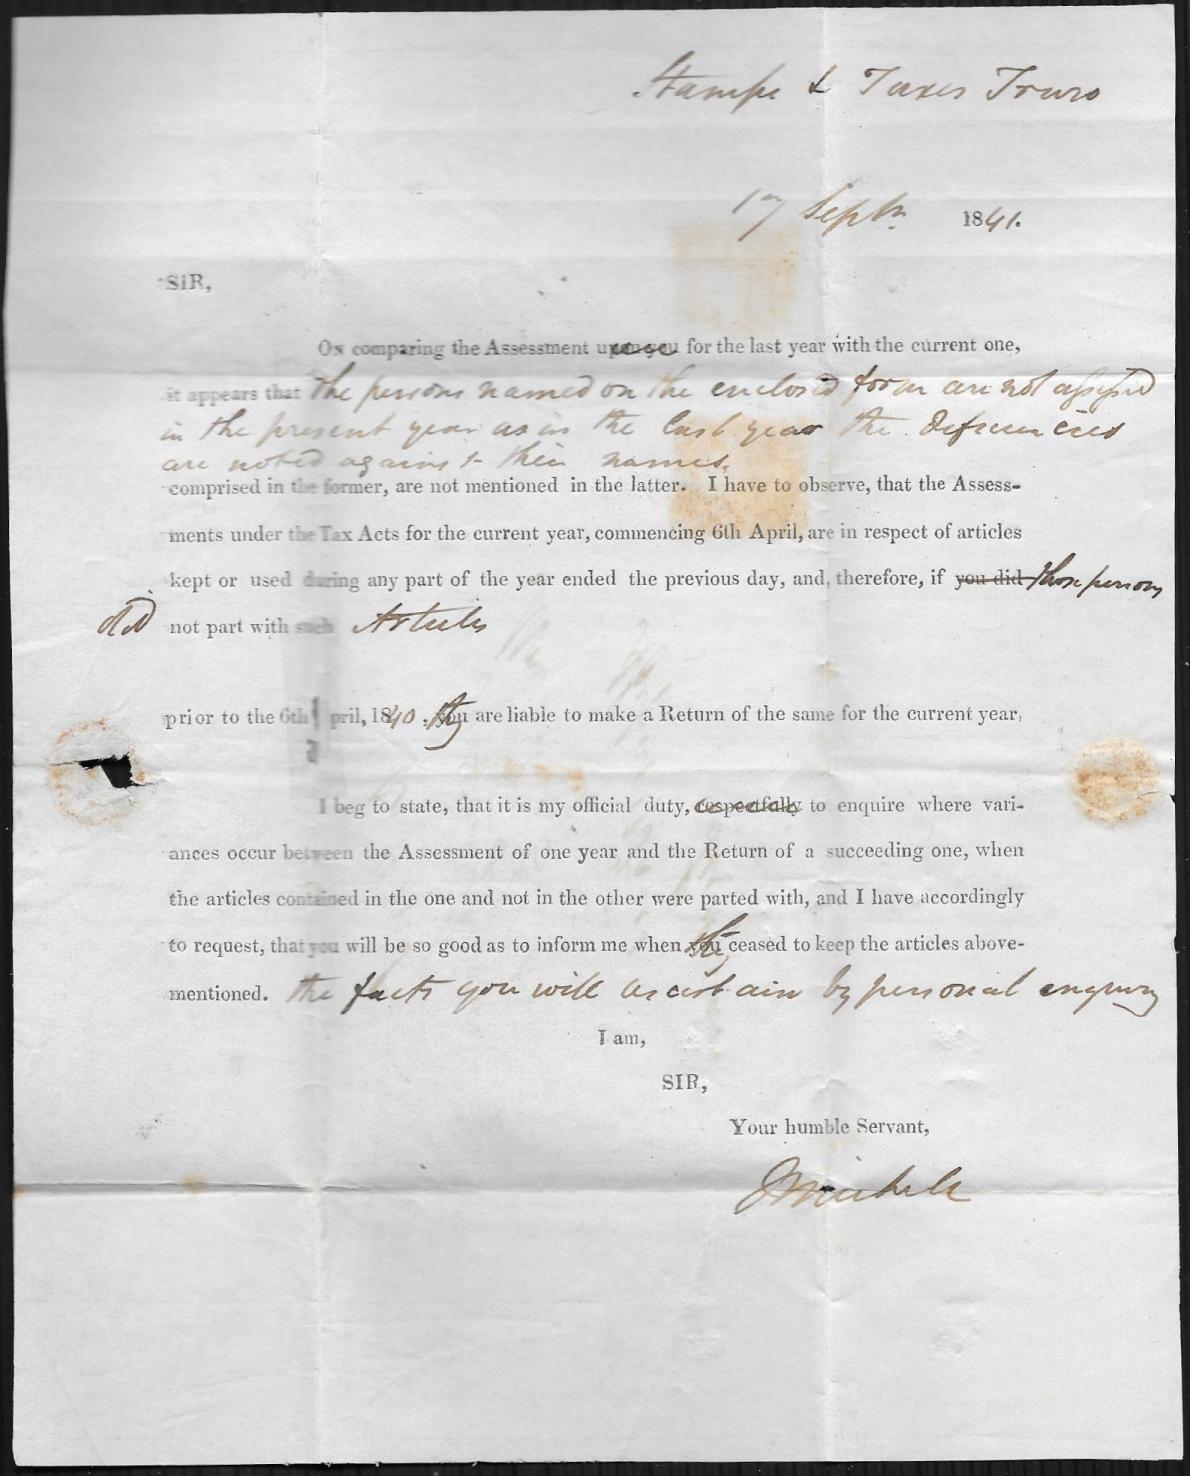 Stamps & Taxes Truro
17 Septr. 1841.
SIR,
On comparing the Assessment upon you for the last year with the current one,
it appears that the persons named on the enclosed form are not assessed
in the present year as in the last year the Deficiencies
are noted against their names.
comprised in the former, are not mentioned in the latter. I have to observe, that the Assess-
ments under the Tax Acts for the current year, commencing 6th April, are in respect of articles
kept or used during any part of the year ended the previous day, and, therefore, if you did those persons
did not part with such Articles
prior to the 6th April, 1840, they are liable to make a Return of the same for the current year,
I beg to state, that it is my official duty, respectfully to enquire where vari-
ances occur between the Assessment of one year and the Return of a succeeding one, when
the articles contained in the one and not in the other were parted with, and I have accordingly
to request, that you will be so good as to inform me when they ceased to keep the articles above-
mentioned. the facts you will ascertain by personal enquiry
I am,
SIR,
Your humble Servant,